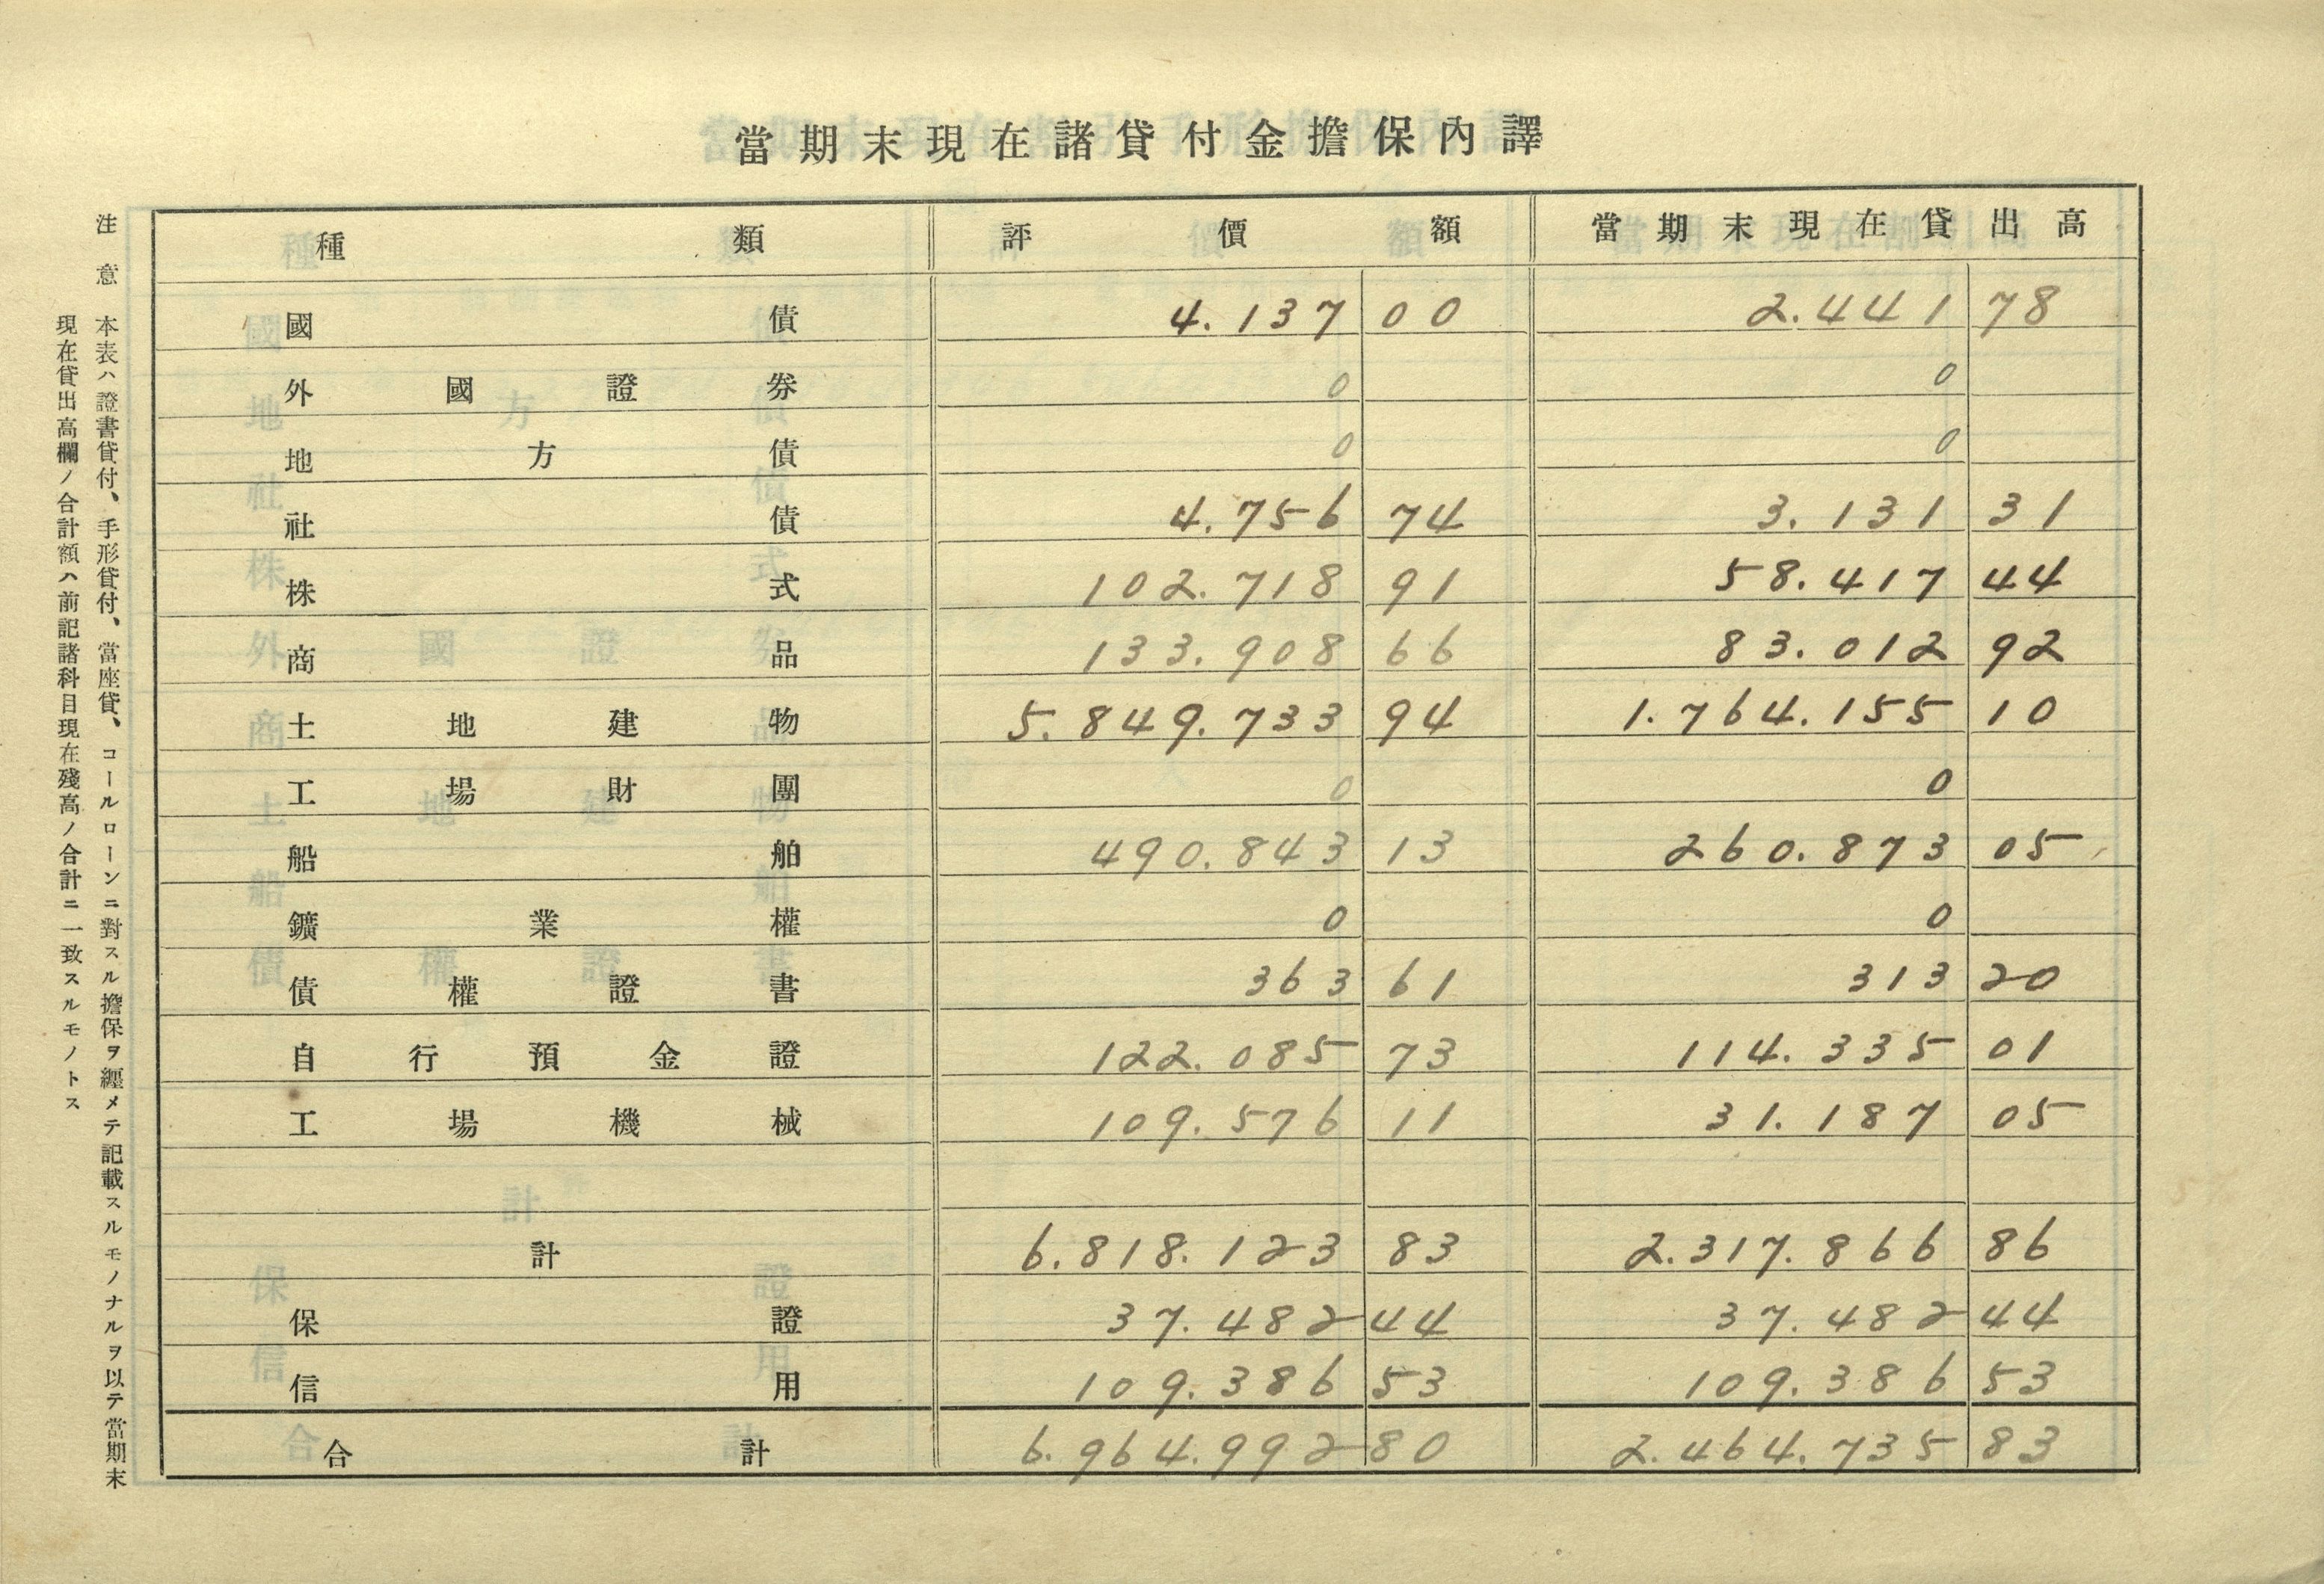 當期末現在諸貸付金擔保內譯
種類 評價額 當期末現在貸出高
國債 4.137 00 2.441 78
外國證券 0 0
地方債 0 0
社債 4.756 74 3.131 31
株式 102.718 91 58.417 44
商品 133.908 66 83.012 92
土地建物 5.849.733 94 1.764.155 10
工場財團 0 0
船舶 490.843 13 260.873 05
鑛業權 0 0
債權證書 363 61 313 20
自行預金證 122.085 73 114.335 01
工場機械 109.576 11 31.187 05
計 6.818.123 83 2.317.866 86
保證 37.482 44 37.482 44
信用 109.386 53 109.386 53
合計 6.964.992 80 2.464.735 83
注意 本表ハ證書貸付、手形貸付、當座貸、コールローンニ對スル擔保ヲ纒メテ記載スルモノナルヲ以テ當期末
現在貸出高欄ノ合計額ハ前記諸科目現在殘高ノ合計ニ一致スルモノトス